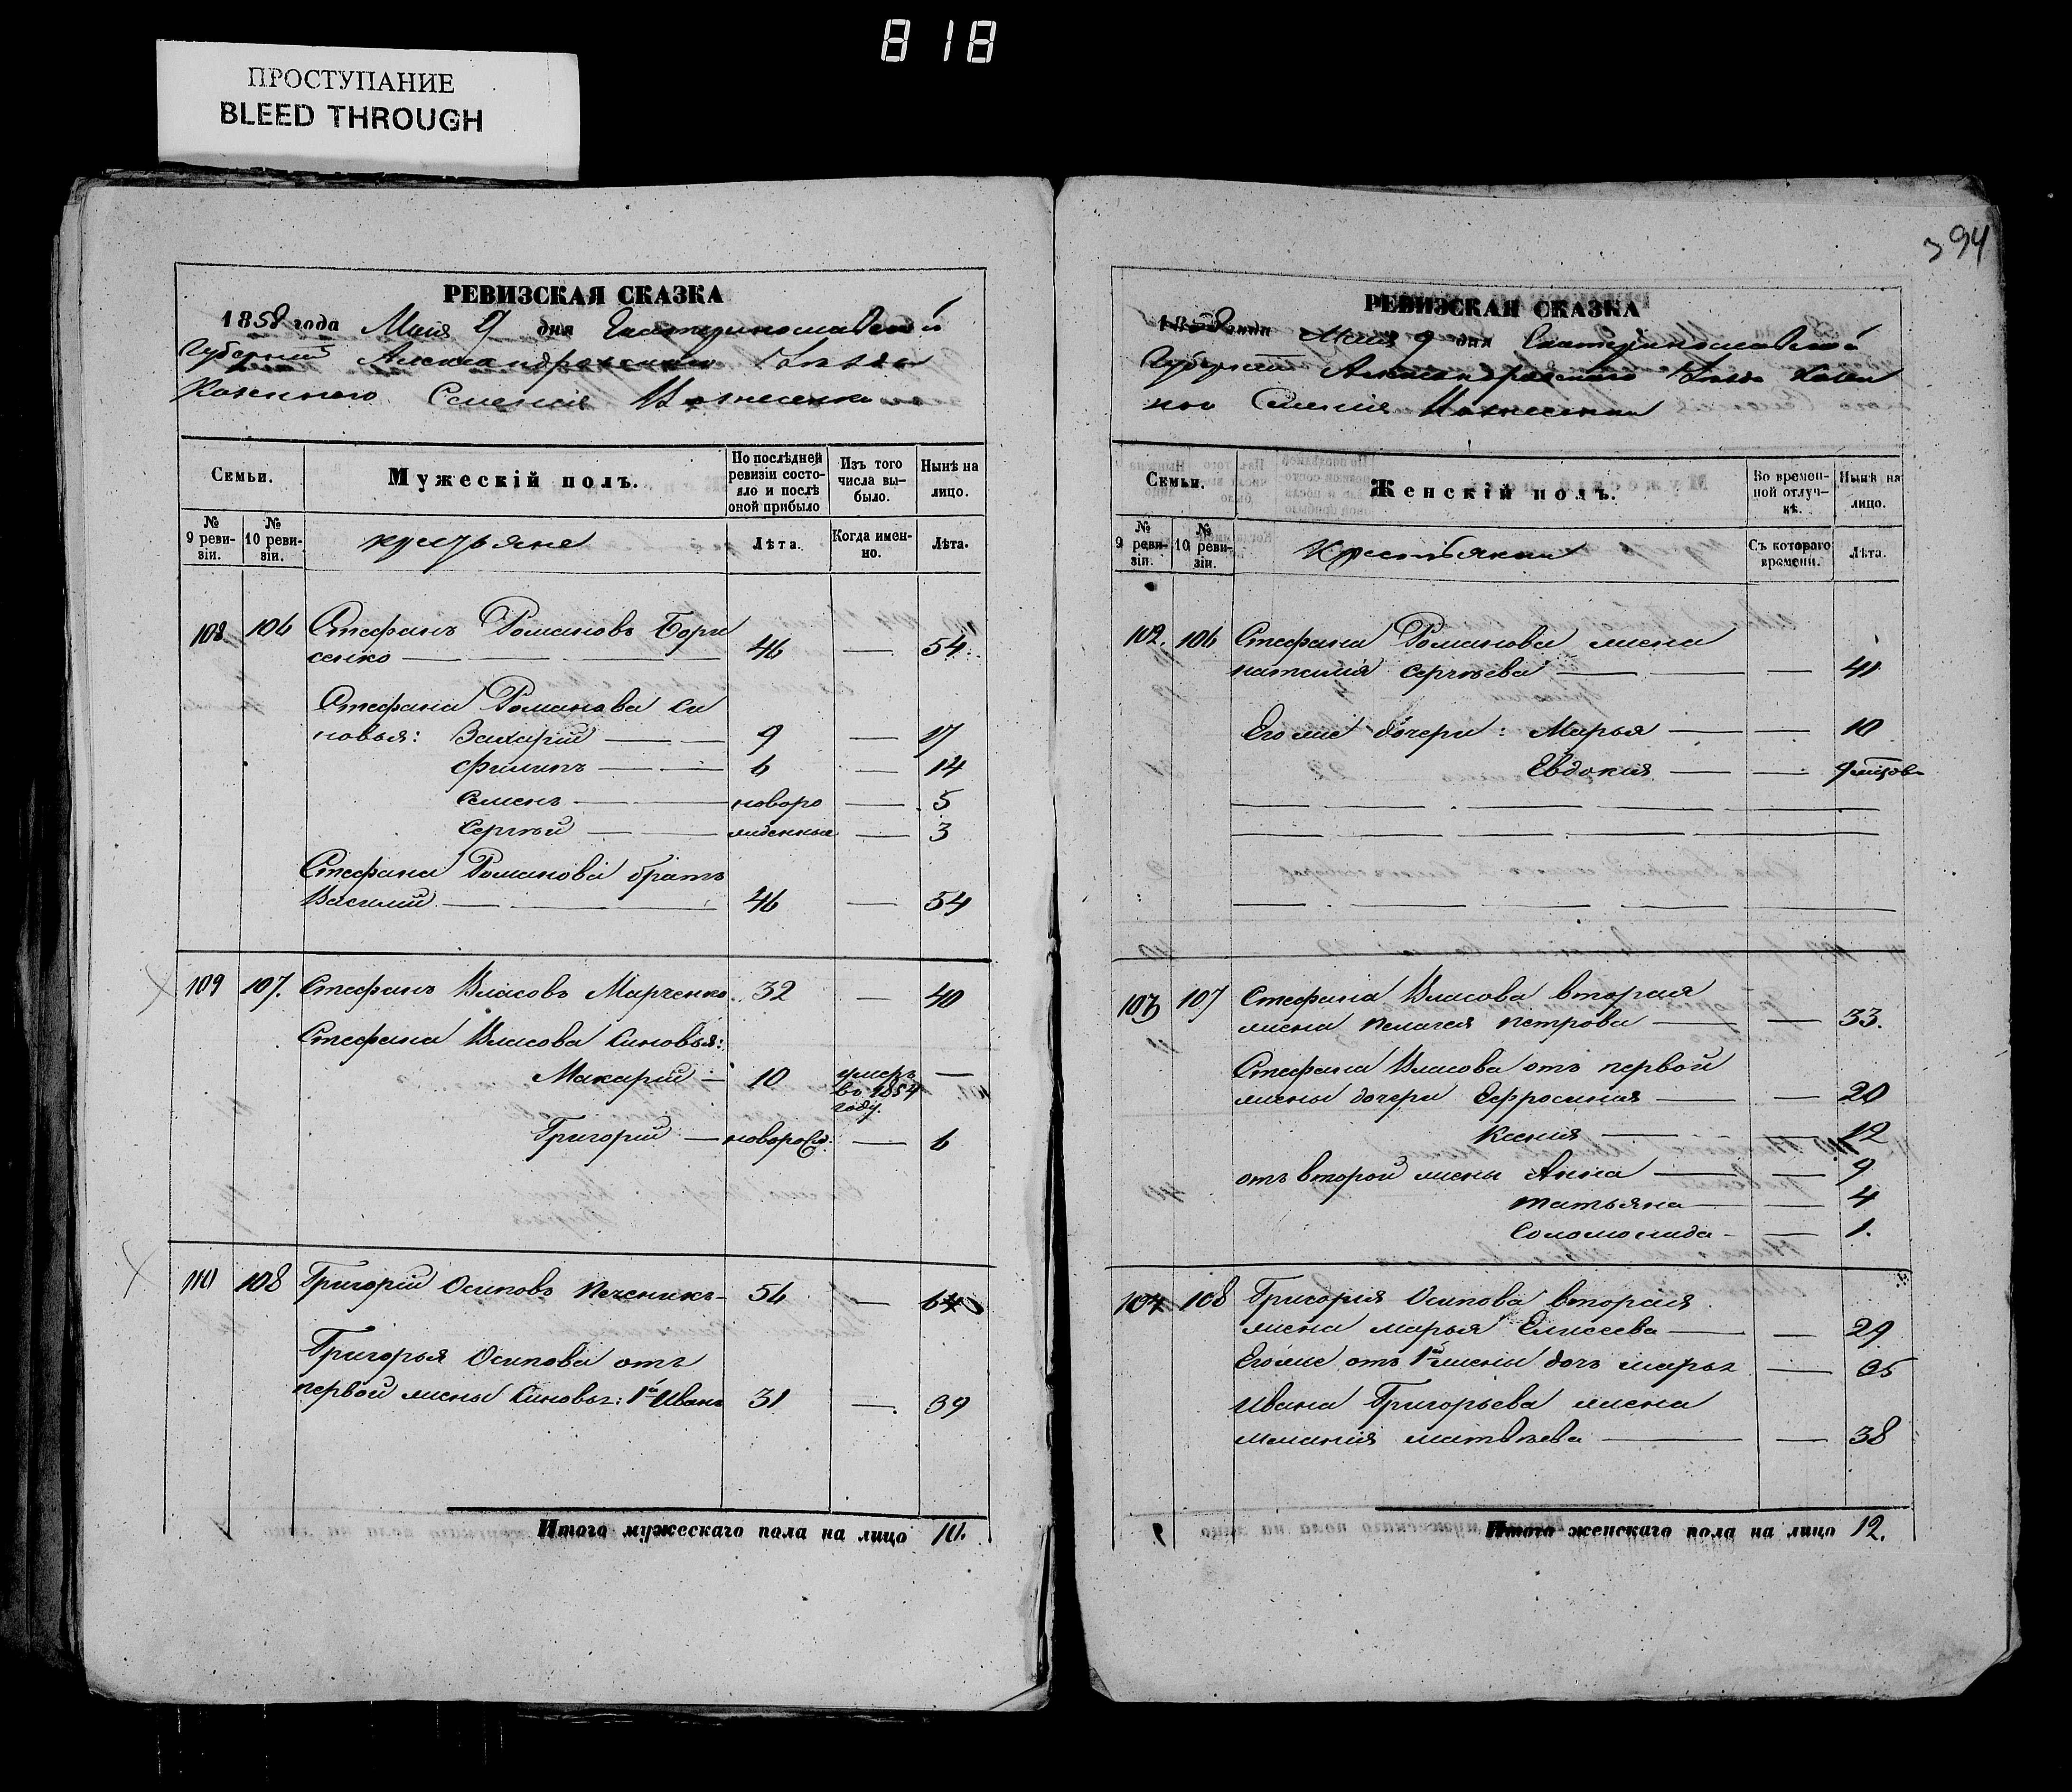 818
ПРОСТУПАНИЕ
BLEED THROUGH
394
РЕВИЗСКАЯ СКАЗКА
1858 года Мая 9 дня Екатеринославской
Губерніи Александровскаго Уѣзда
Казеннаго Селенія Вознесенки
Семьи.
Мужескій полъ.
По послѣдней ревизіи состо-
яло и послѣ оной прибыло
Изъ того числа вы-
было.
Нынѣ на лицо.
№ 9 реви-
зіи.
№ 10 реви-
зіи.
Лѣта.
Когда имен-
но.
Лѣта.
108. 106 Стефанъ Романовъ Бори
сенко 46 — 54.
Стефана Романова си
новья: Захарій — 9 — 17
Филипъ — 6 — 14
Семенъ — новоро — 5
Сергѣй — жденные — 3
Стефана Романова братъ
Василій — 46 — 54
109 107. Стефанъ Власовъ Марченко 32 — 40
Стефана Власова синовья:
Макарій — 10 умеръ —
въ 1854
году.
Григорій — новорожд: — 6
110 108 Григорій Осиповъ Печеникъ 56 —
Григорья Осипова отъ
первой жены синовья: 1й Иванъ 31 — 39
Итого мужескаго пола на лицо 10.
РЕВИЗСКАЯ СКАЗКА
1858 Мая 9 дня Екатеринославской
Губерніи Александровскаго Уѣзда Казен
наго Селенія Вознесенки
Семьи.
Женскій полъ.
Во времен-
ной отлуч-
кѣ.
Нынѣ на лицо.
№ 9 реви-
зіи.
№ 10 реви-
зіи.
Крестьяни
Съ котораго времени.
Лѣта.
102. 106 Стефана Романова жена
наталія Сергѣева — — 41
Его же дочери: Марья — — 10
Евдокія — — 9 мѣсов
103 107 Стефана Власова вторая
жена пелагея петрова — — 33.
Стефана Власова отъ первой
жены дочери Ефросинія — — 20
Ксенія — — 12
отъ второй жены Анна — — 9
татьяна — — 4
Соломонида — — 1.
104 108 Григорія Осипова вторая
жена марья Елисеева — — 29
Его же отъ 1й жены дочь марья —
Ивана Григорьева жена
меланія матвѣева — — 38
Итого женскаго пола на лицо 12.